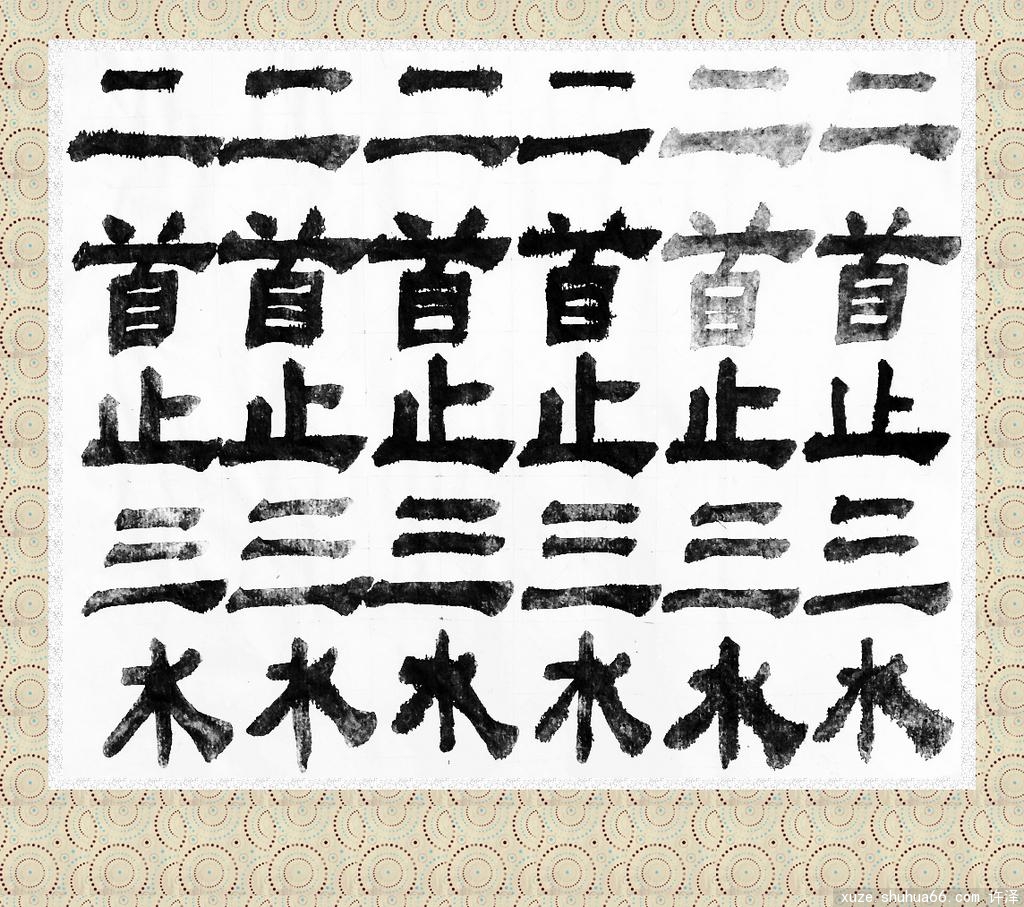 二二二二二二
首首首首首首
止止止止止止
三三三三三三
水水水水水水
xuze.shuhua66.com 许泽